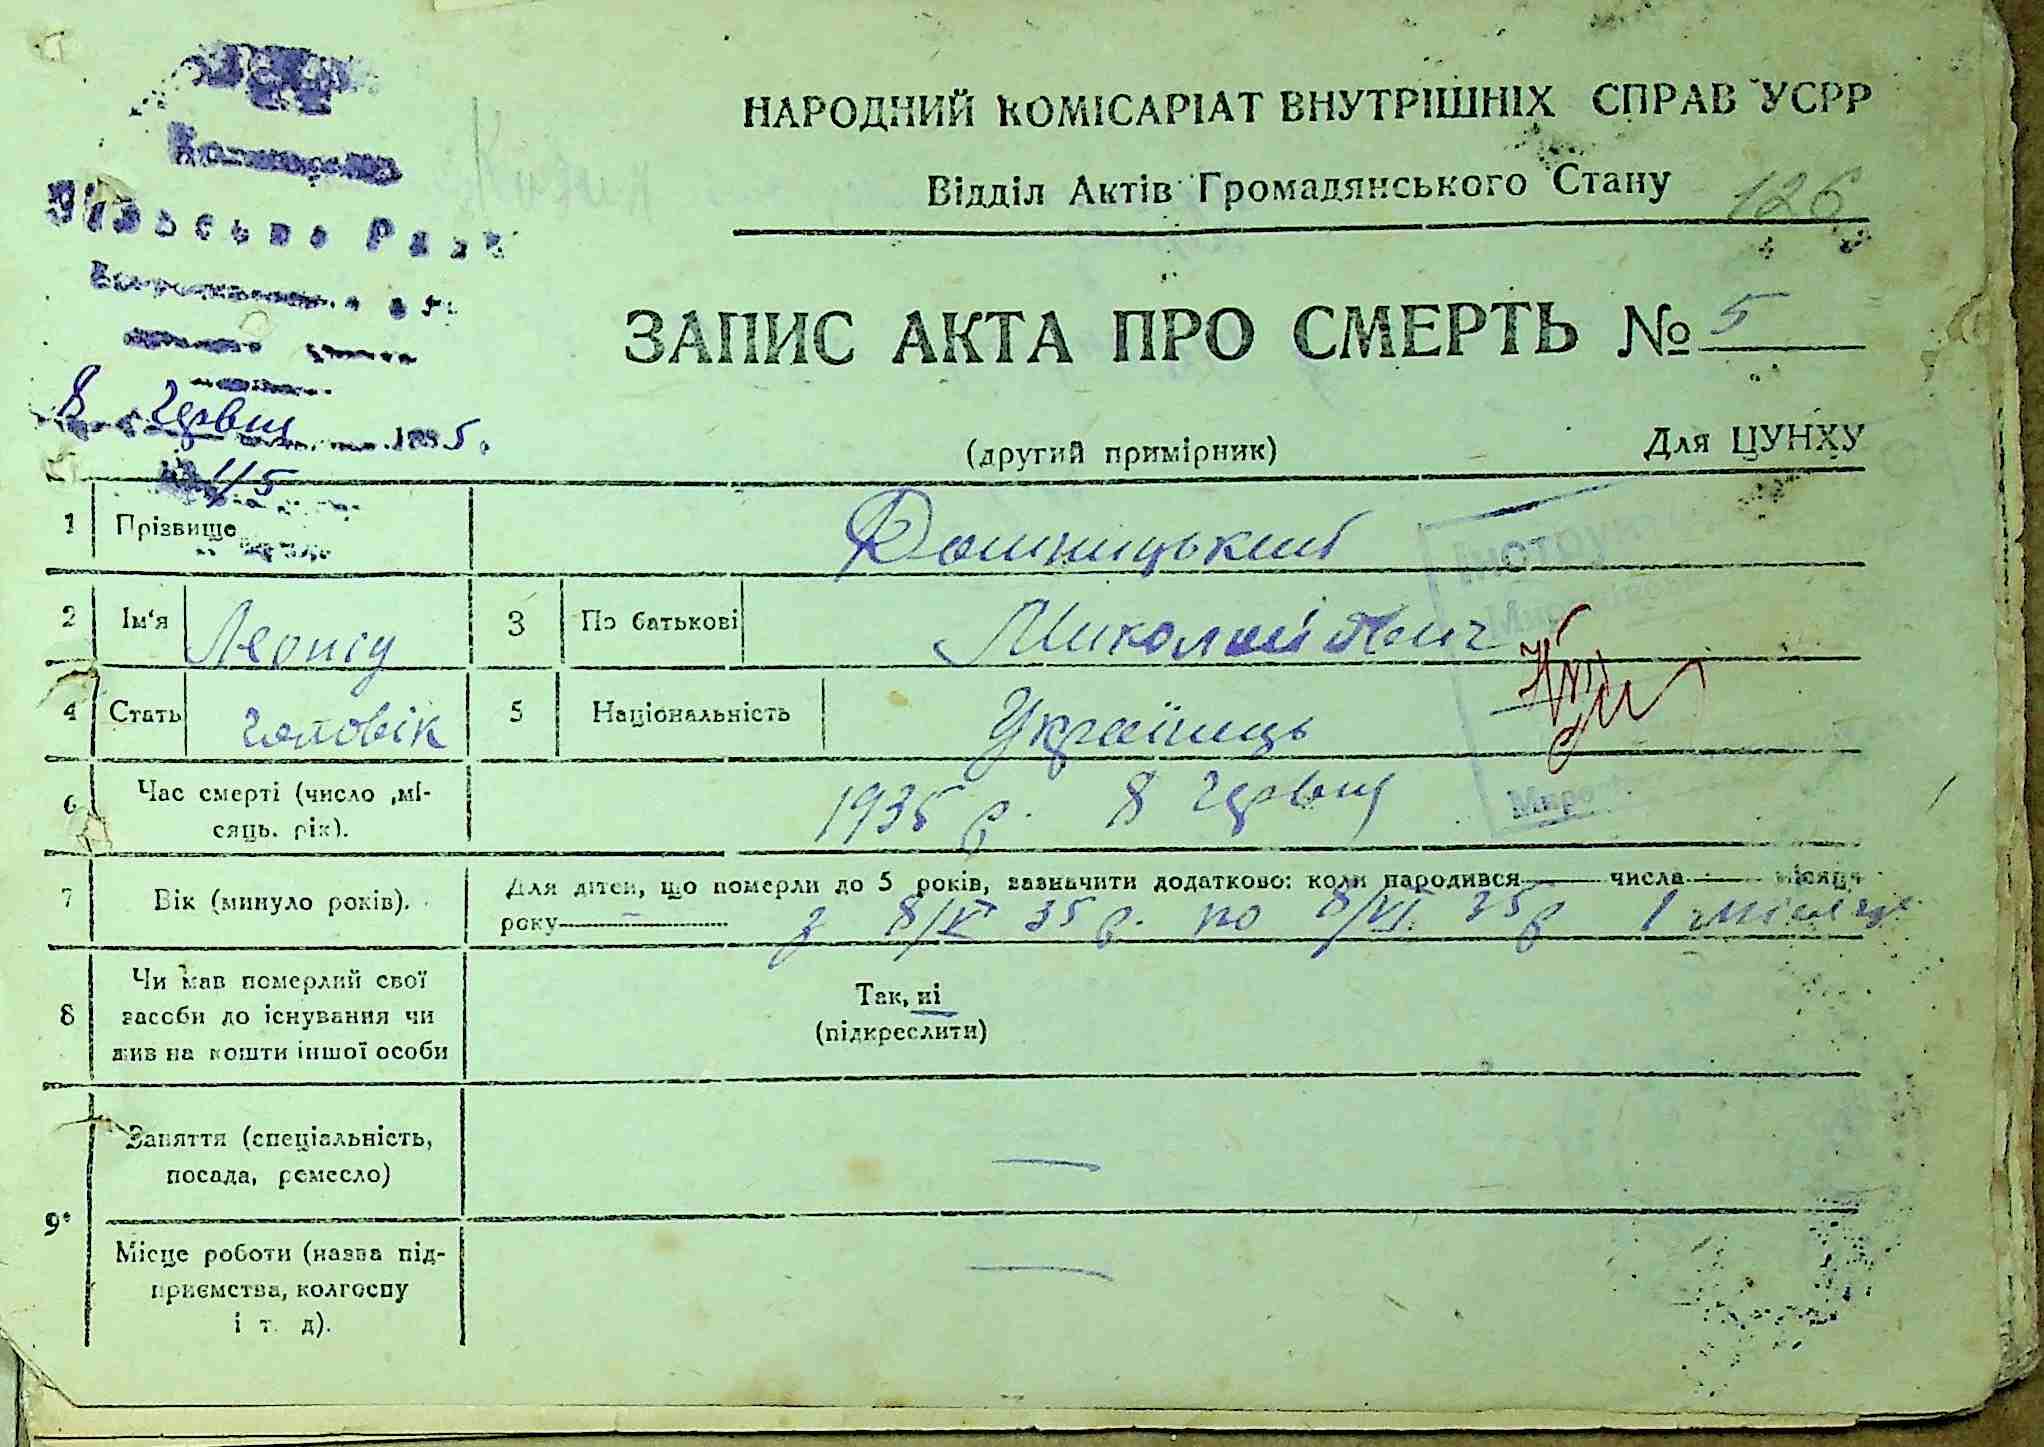 НАРОДНИЙ КОМІСАРІАТ ВНУТРІШНІХ СПРАВ УСРР
Відділ Актів Громадянського Стану
126
ЗАПИС АКТА ПРО СМЕРТЬ № 5
8 Червня 1935.
115
(другий примірник) Для ЦУНХУ
1 Прізвище
2 Ім'я Леонід 3 По батькові Миколайович
4 Стать чоловік 5 Національність Українець
6 Час смерті (число ,мі-
сяць. рік). 1935 р. 8 Червня
7 Вік (минуло років). Для дітей, що померли до 5 років, зазначити додатково: коли народився числа місяця
року з 8/V 35 р. по 8/VI 35 р 1 місяць
8 Чи мав померлий свої
засоби до існування чи
жив на кошти іншої особи
Так, ні
(підкреслити)
9 Заняття (спеціальність,
посада, ремесло) —
Місце роботи (назва під-
приємства, колгоспу
і т. д). —